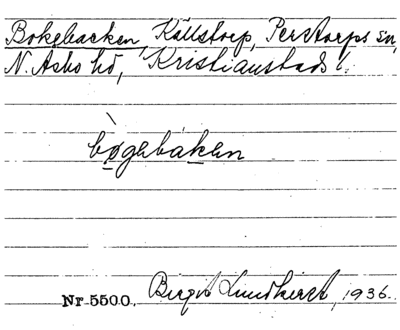 Bokebacken, Källstorp, Perstorps sn,
N. Åsbo hd, Kristianstads l.
bøgebaken
Nr 5500. Birgit Lundkvist, 1936.